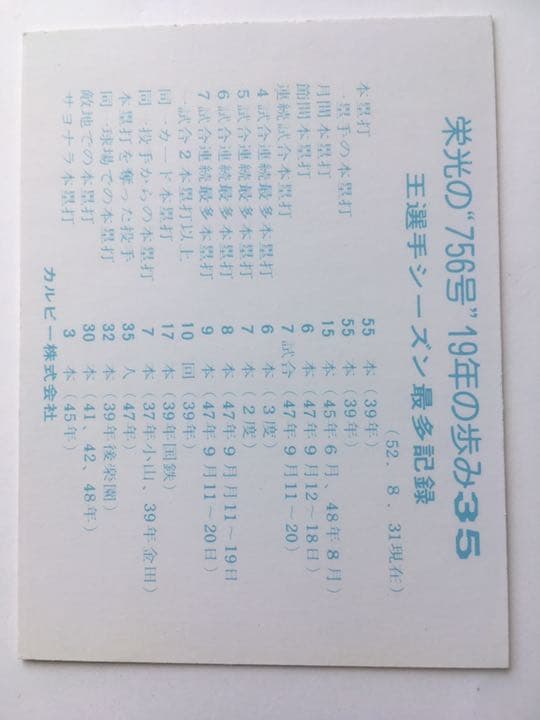 栄光の"756号"19年の歩み35
王選手シーズン最多記録
(52．8．31現在)
本塁打 55本(39年)
一塁手の本塁打 55本(39年)
月間本塁打 15本(45年6月、48年8月)
節間本塁打 6本(47年9月12～18日)
連続試合本塁打 7試合(47年9月11～20)
4試合連続最多本塁打 6本(3度)
5試合連続最多本塁打 7本(2度)
6試合連続最多本塁打 8本(47年9月11～19日
7試合連続最多本塁打 9本(47年9月11～20日)
一試合2本塁打以上 10回(39年)
同一カード本塁打 17本(39年国鉄)
同一投手からの本塁打 7本(37年小山、39年金田)
本塁打を奪った投手 35人(47年)
同一球場での本塁打 32本(39年後楽園)
敵地での本塁打 30本(41、42、48年)
サヨナラ本塁打 3本(45年)
カルビー株式会社